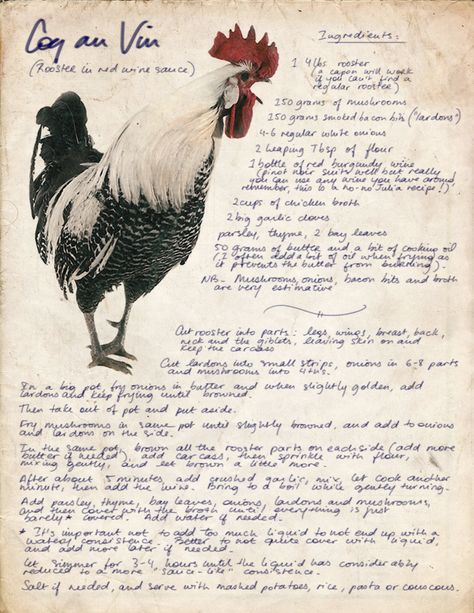 Coq au Vin
(Rooster in red wine sauce)
Ingredients:
1 4 lbs rooster
(a capon will work
if you can't find a
regular rooster)
150 grams of mushrooms
150 grams smoked bacon bits ("lardons")
4-6 regular white onions
2 heaping Tbsp of flour
1 bottle of red burgundy wine
(pinot noir suits well but really
you can use any wine you have around
remember, this is a no-no Julia recipe!)
2 cups of chicken broth
2 big garlic cloves
parsley, thyme, 2 bay leaves
50 grams of butter and a bit of cooking oil
(I often add a bit of oil when frying as
it prevents the butter from burning).
NB - Mushrooms, onions, bacon bits and broth
are very estimative
Cut rooster into parts: legs, wings, breast, back,
neck and the giblets, leaving skin on and
keep the carcass
Cut lardons into small strips, onions in 6-8 parts
and mushrooms into 4ths.
In a big pot, fry onions in butter and when slightly golden, add
lardons and keep frying until browned.
Then take out of pot and put aside.
Fry mushrooms in same pot until slightly browned, and add to onions
and lardons on the side.
In the same pot, brown all the rooster parts on each side (add more
butter if needed), add carcass, then sprinkle with flour,
mixing gently, and let brown a little more.
After about 5 minutes, add crushed garlic, mix, let cook another
minute, then add the wine. Bring to a boil while gently turning.
Add parsley, thyme, bay leaves, onions, lardons and mushrooms,
and then cover with the broth until everything is just
barely* covered. Add water if needed.
* It's important not to add too much liquid to not end up with a
watery consistence. Better to not quite cover with liquid,
and add more later if needed.
Let simmer for 3-4 hours until the liquid has considerably
reduced to a more "sauce-like" consistence.
Salt if needed, and serve with mashed potatoes, rice, pasta or couscous.